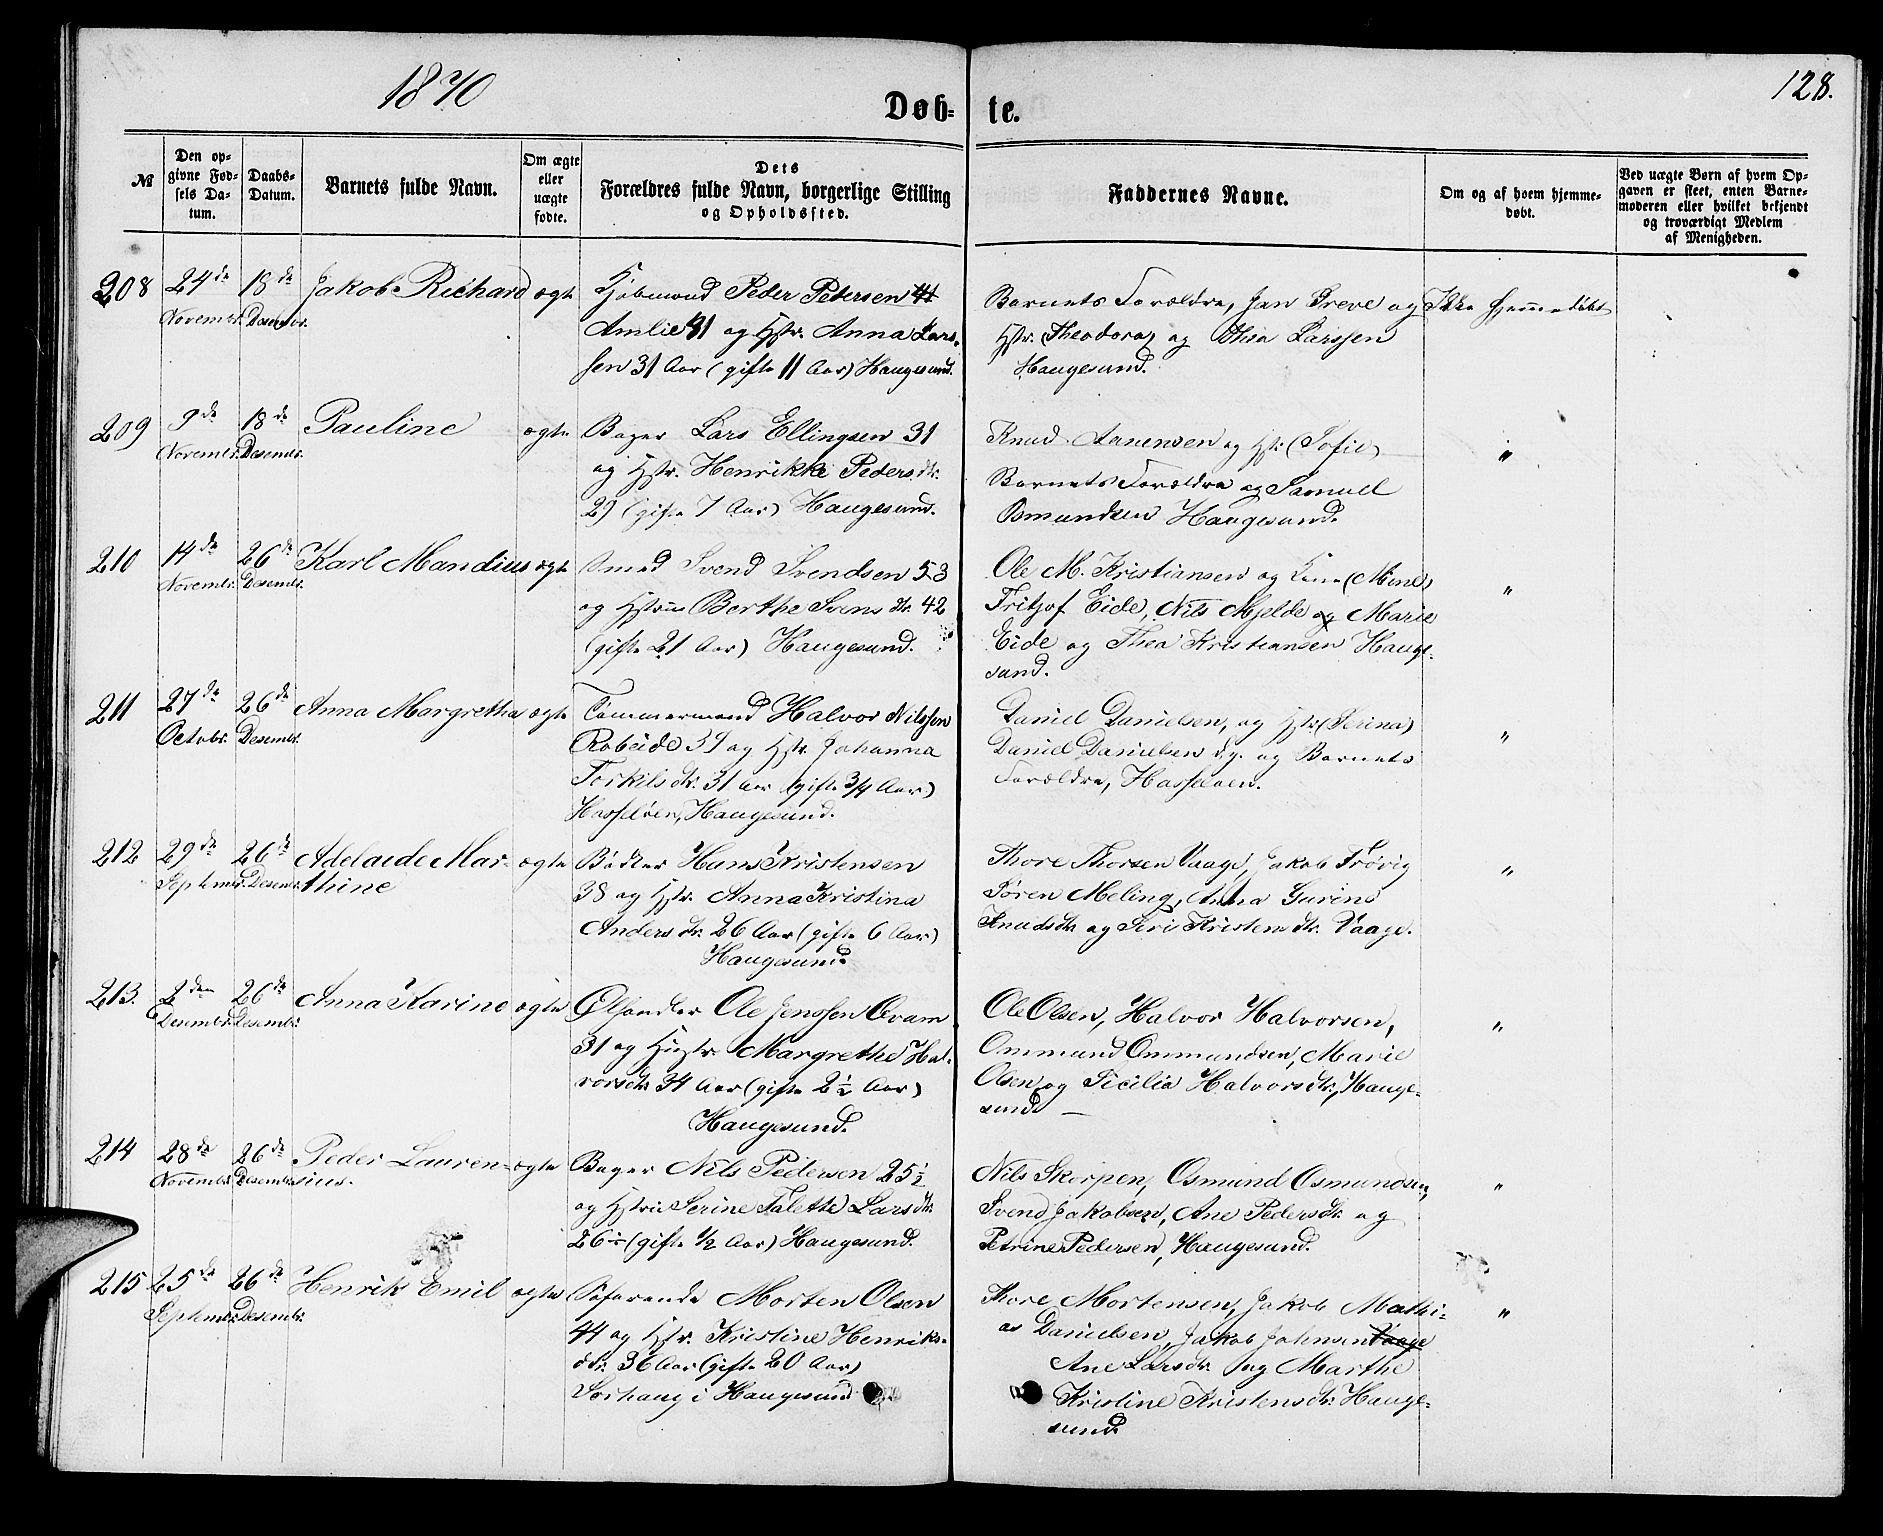 1870
Døb-te.
128.
№
Den op-
givne Fød-
sels Da-
tum.
Daabs-
Datum.
Barnets fulde Navn.
Om ægte
eller
uægte
fødte.
Dets
Forældres fulde Navn, borgerlige Stilling
og Opholdssted.
Faddernes Navne.
Om og af hvem hjemme-
døbt.
Ved uægte Børn af hvem Op-
gaven er skeet, enten Barne-
moderen eller hvilket bekjendt
og troværdigt Medlem
af Menigheden.
208 24de Novembr. 18de Desembr. Jakob Richard ægte
Kjøbmand Peder Petersen
Amlie 41 og Hstr. Anna Lars-
sen 31 Aar (gifte 11 Aar) Haugesund.
Barnets Forældre, Jan Greve og
Hstr. (Theodora) og Thea Larssen
Haugesund.
Ikke hjemmedøbt
209 9de Novembr. 18de Desembr. Pauline ægte
Bager Lars Ellingsen 31
og Hstr. Henrikke Pedersdtr.
29 (gifte 7 Aar) Haugesund.
Knud Aanensen og Hstr. (Sofie)
Barnets Forældre og Samuel
Osmundsen Haugesund.
"
210 14de Novembr. 26de Desembr. Karl Mandius ægte
Smed Svend Svendsen 53
og Hstru Berthe Svens dtr. 42
(gifte 21 Aar) Haugesund.
Ole M. Kristiansen og Kone (Mine)
Fritjof Eide, Nils Mjelde og Marie
Eide og Thea Kristiansen Hauge-
sund.
"
211 27de Octobr. 26de Desembr. Anna Margretha ægte
Tømmermand Halvor Nilssen
Røbeide 39 og Hstr. Johanna
Torkilsdtr. 31 Aar (gifte 3/4 Aar)
Hasseløen, Haugesund.
Daniel Danielsen, og Hstr. (Serina)
Daniel Danielsen d.y. og Barnets
Forældre, Hasseløen.
"
212 29de Septembr. 26de Desembr. Adelaide Mar-
thine ægte
Bødker Hans Kristensen
38 og Hstr. Anna Kristina
Anders dtr. 26 Aar (gifte 6 Aar)
Haugesund.
Thore Thorsen Vaage, Jakob Frøvig
Søren Meling, Anna Gurine
Knudsdtr. og Siri Kristens dtr. Vaage.
"
213. 2den Desembr. 26de Desembr. Anna Karine ægte
Ølhandler Ole Jenssen Qvam
31 og Hustr. Margrethe Hal-
vorsdtr. 34 Aar (gifte 2 1/2 Aar)
Haugesund.
Ole Olsen, Halvor Halvorsen,
Ommund Ommundsen, Marie
Olsen og Sicilia Halvorsdtr., Hauge-
sund
"
214 28de Novembr. 26de Desembr. Peder Lauren-
sius. ægte
Bager Nils Pedersen 25 1/2
og Hstru Serine Talette Lars dtr.
26 (gifte 1/2 Aar) Haugesund.
Nils Skorpen, Osmund Osmundsen,
Svend Jakobsen, Ane Pedersdtr. og
Petrine Pedersen, Haugesund.
"
215 25de Septembr. 26de Desembr. Henrik Emil ægte
Søfarende Morten Olsen
44 og Hstr. Kristine Henriks-
dtr. 36 Aar (gifte 20 Aar)
Sørhaug i Haugesund
Thore Mortensen, Jakob Mathi-
as Danielsen, Jakob Johnsen Vaage
Ane Larsdtr. og Marthe
Kristine Kristensdtr. Hauge-
sund.
"